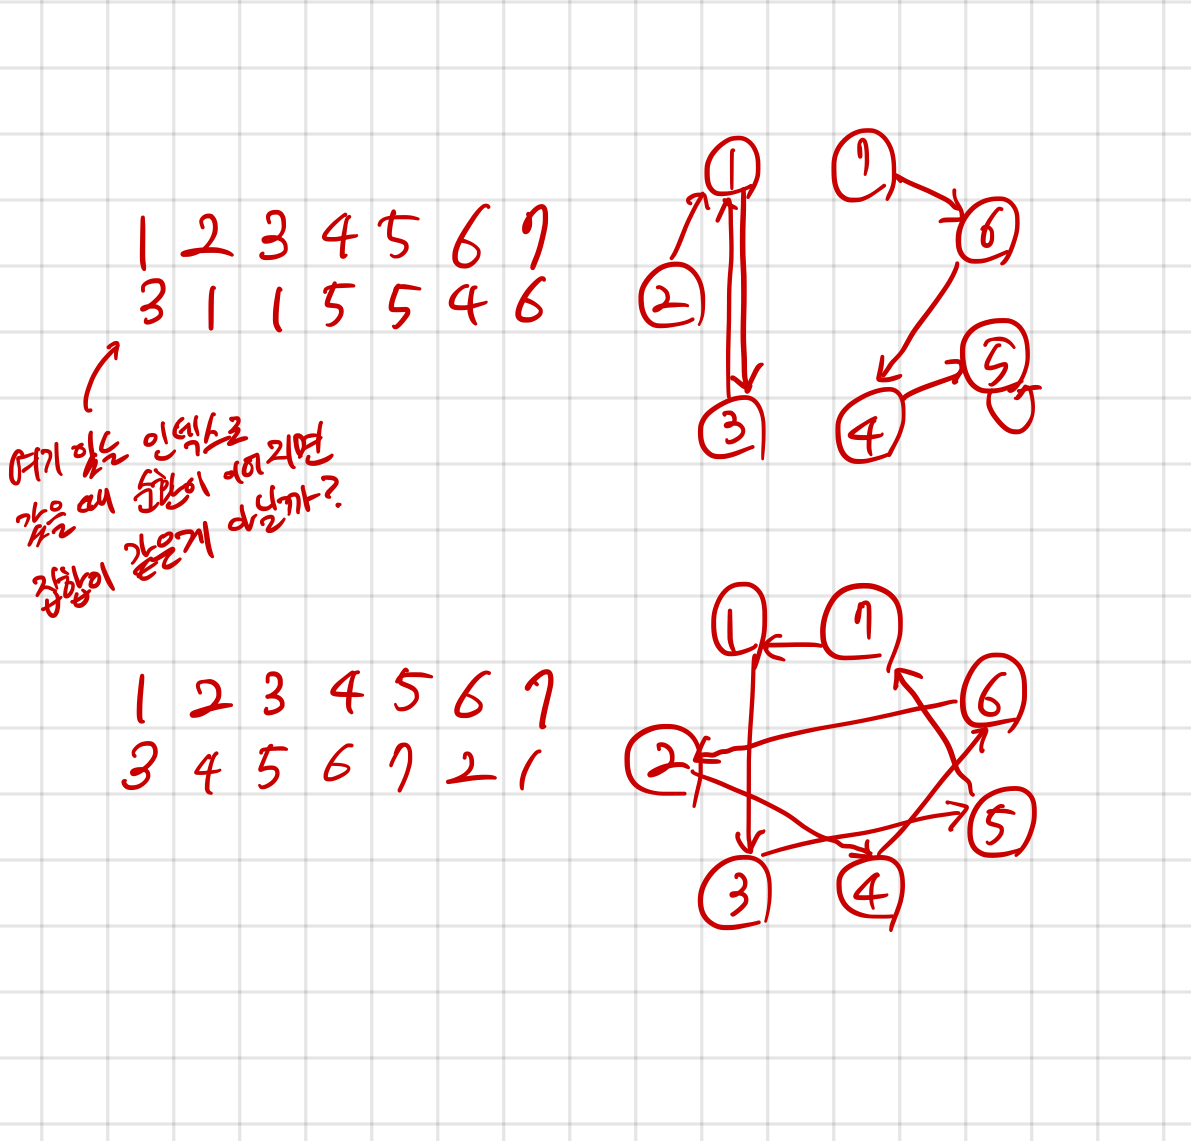 1 2 3 4 5 6 7
3 1 1 5 5 4 6
여기 있는 인덱스로
갔을 때 순환이 이어지면
집합이 같은게 아닐까?
1
7
6
2
5
3
4
1 2 3 4 5 6 7
3 4 5 6 7 2 1
1
7
6
2
5
3
4